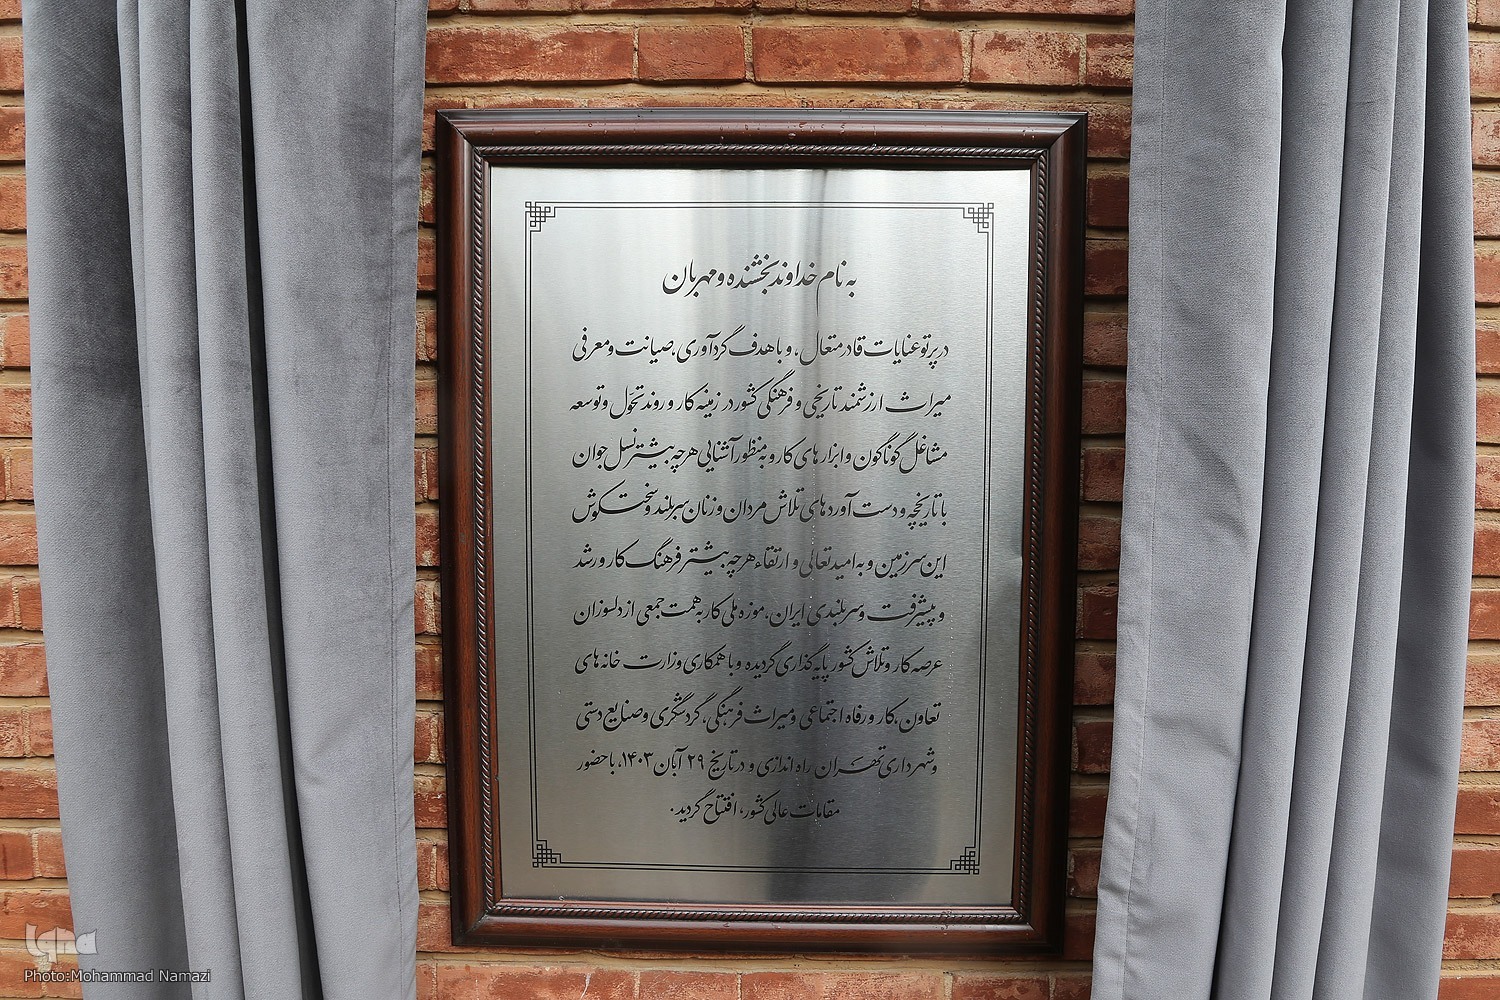 به نام خداوند بخشنده و مهربان
در پرتو عنایات قادر متعال، و با هدف گردآوری، صیانت و معرفی
میراث ارزشمند تاریخی و فرهنگی کشور در زمینه کار و روند تحوّل و توسعه
مشاغل گوناگون و ابزارهای کار و به منظور آشنایی هرچه بیشتر نسل جوان
با تاریخچه و دست آوردهای تلاش مردان و زنان سربلند و سختکوش
این سرزمین و به امید تعالی و ارتقاء هرچه بیشتر فرهنگ کار و رشد
و پیشرفت و سربلندی ایران، موزه ملی کار به همت جمعی از دلسوزان
عرصه کار و تلاش کشور پایه گذاری گردیده و با همکاری وزارت خانه های
تعاون، کار و رفاه اجتماعی و میراث فرهنگی، گردشگری و صنایع دستی
و شهرداری تهران راه اندازی و در تاریخ ۲۹ آبان ۱۴۰۳، با حضور
مقامات عالی کشور، افتتاح گردید.
Iqna
Photo:Mohammad Namazi